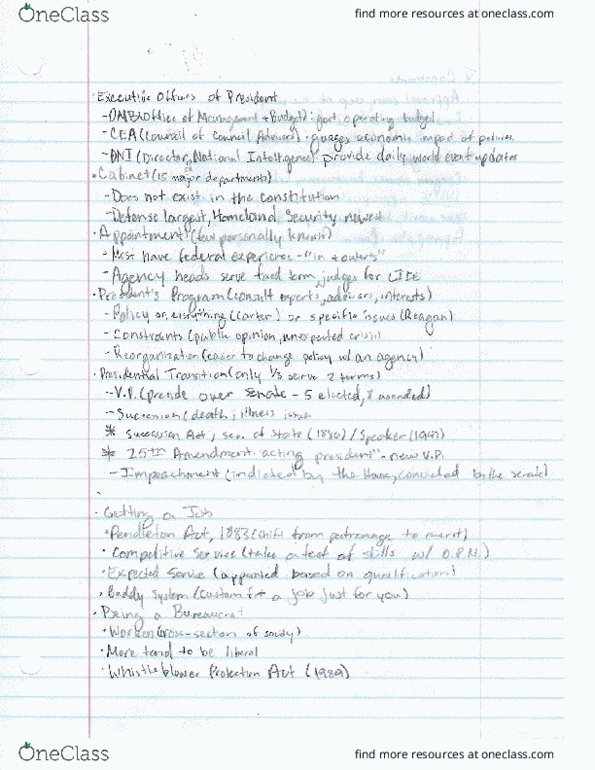 OneClass
find more resources at oneclass.com
· Executive Offices of President
- OMB (Office of Management + Budget): govt operating budget
- CEA (Council of Council Advisors): guages economic impact of policies
- DNI (Director, National Intelligence) provide daily world event updates
· Cabinet (15 major departments)
- Does not exist in the constitution
- Defense largest, Homeland Security newest
· Appointment (few personally known)
- Most have federal experience - "in + outers"
- Agency heads serve fixed term, judges for LIFE
· President's Program (consult experts, advisors, interests)
- Policy on everything (Carter) or specific issues (Reagan)
- Constraints (public opinion, unexpected crisis)
- Reorganization (easier to change policy w/ an agency)
· Presidential Transition (only 1/3 serve 2 terms)
- V.P. (preside over senate - 5 elected, 8 ascended)
- Succession (death, illness issues
* Succession Act, sec. of state (1886) / Speaker (1947)
* 25th Amendment "acting president" - new V.P.
- Impeachment (indicted by the House, convicted by the senate)
· Getting a Job
· Pendleton Act, 1883 (shift from patronage to merit)
· Competitive Service (take a test of skills w/ O.P.M.)
· Expected Service (appointed based on qualification)
· Buddy System (custom fit a job just for you)
· Being a Bureaucrat
· Worker (cross-section of society)
· More tend to be liberal
· Whistleblower Protection Act (1989)
OneClass
find more resources at oneclass.com